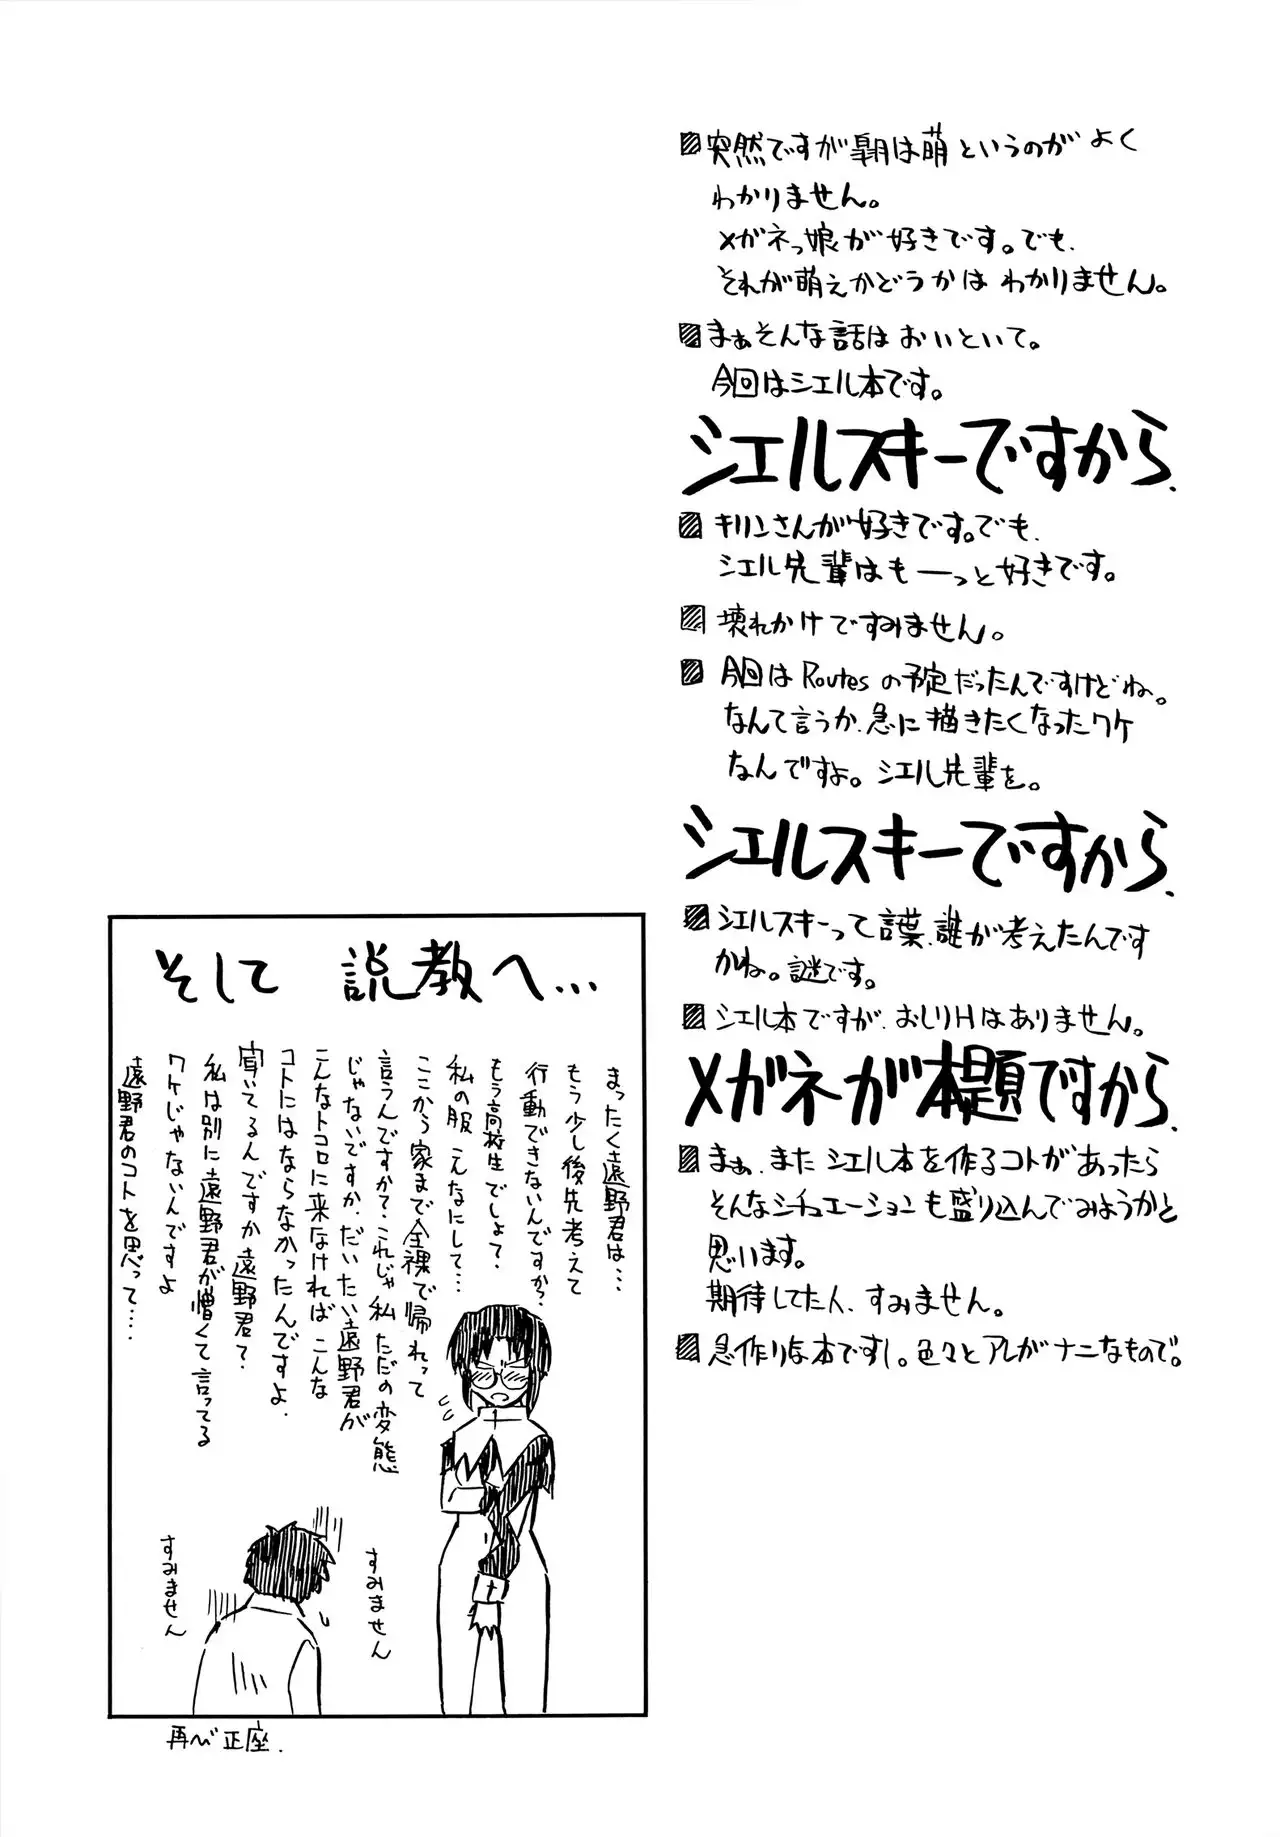 突然ですが皐月は萌というのがよく
わかりません。
メガネっ娘が好きです。でも、
それが萌えかどうかはわかりません。
まぁそんな話はおいといて。
今回はシエル本です。
シエルスキーですから、
キリンさんが好きです。でも、
シエル先輩はもーっと好きです。
壊れかけですみません。
今回はRoutesの予定だったんですけどね。
なんて言うか、急に描きたくなったワケ
なんですよ。シエル先輩を。
シエルスキーですから、
シエルスキーって言葉、誰が考えたんです
かね。謎です。
シエル本ですが、おしりHはありません。
メガネが本題ですから、
まぁ、またシエル本を作るコトがあったら
そんなシチュエーションも盛り込んでみようかと
思います。
期待してた人、すみません。
急作りな本ですし。色々とアレがナニなもので。
そして 説教へ…
まったく遠野君は…
もう少し後先考えて
行動できないんですか?
もう高校生でしょ?
私の服こんなにして…
ここから家まで全裸で帰れって
言うんですか?これじゃ私ただの変態
じゃないですか、だいたい遠野君が
こんなトコロに来なければこんな
コトにはならなかったんですよ、
聞いてるんですか遠野君?
私は別に遠野君が憎くて言ってる
ワケじゃないんですよ
遠野君のコトを思って…
すみません
すみません
再び正座、